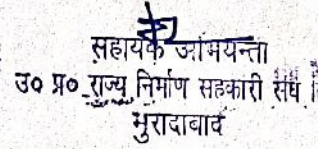 सहायक अभियन्ता
उ० प्र० राज्य निर्माण सहकारी संघ
मुरादाबाद